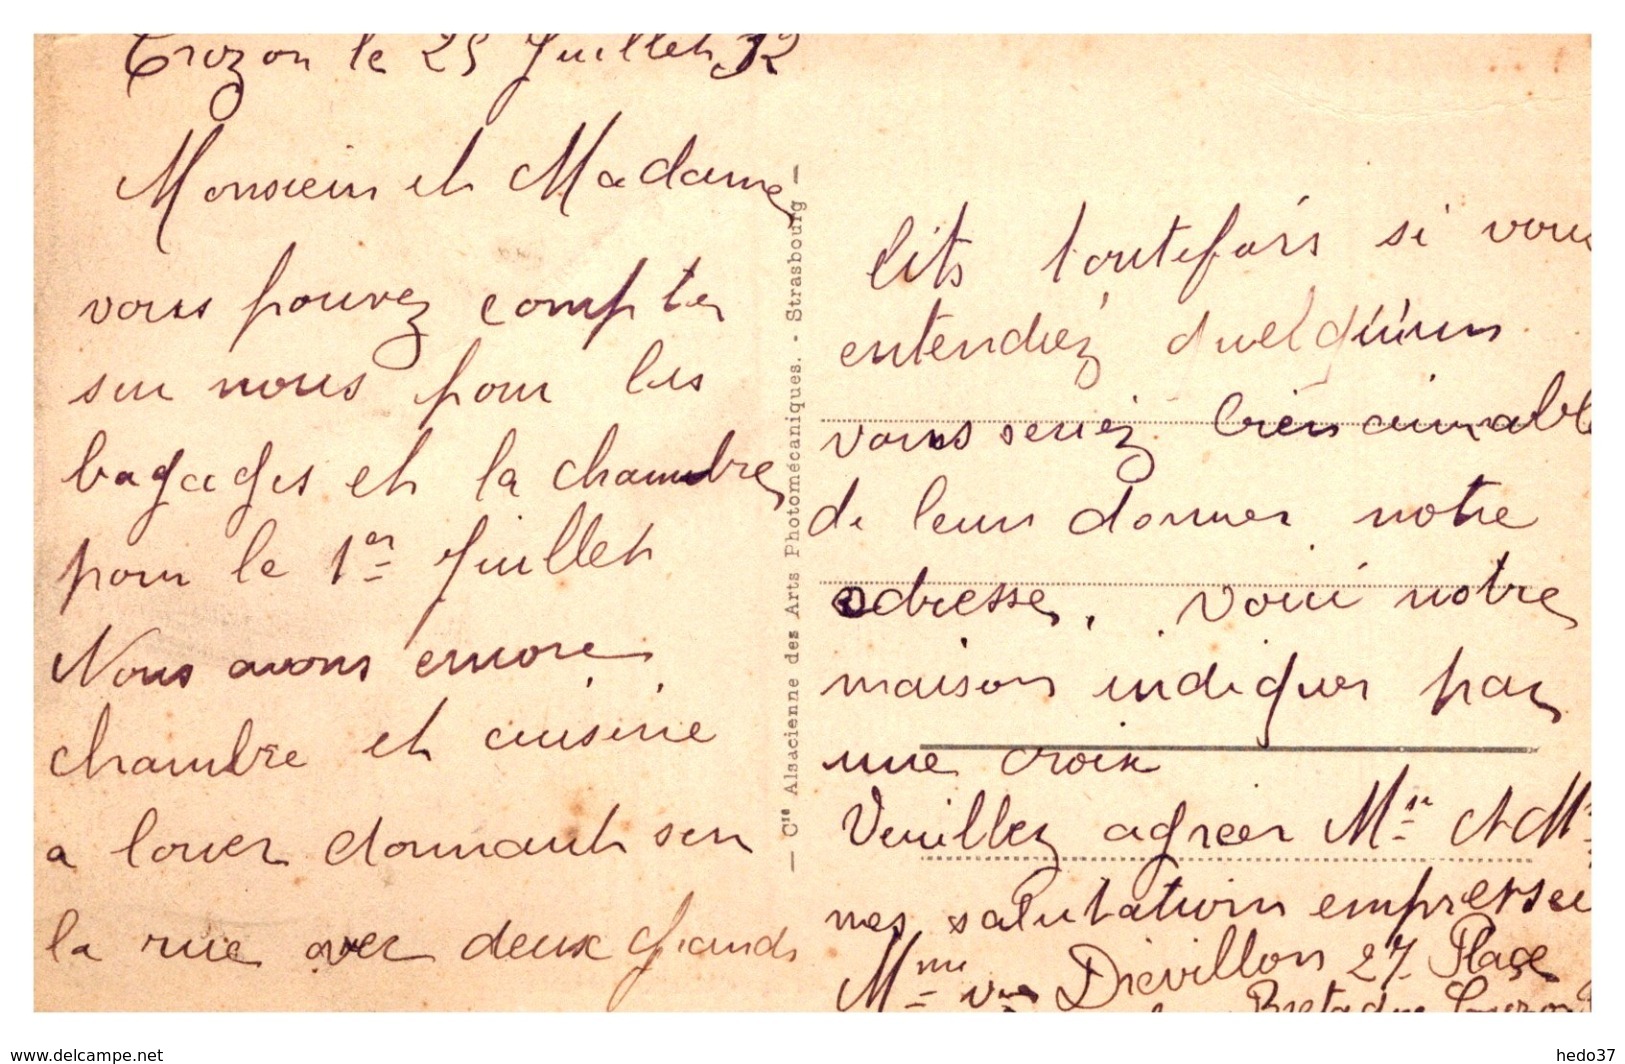 Crozon le 25 Juillet 32
Monsieur et Madame
vous pouvez compter
sur nous pour les
bagages et la chambre
pour le 1er Juillet
Nous avons encore
chambre et cuisine
a louer donnant sur
la rue avec deux grands
— Cie Alsacienne des Arts Photomécaniques. - Strasbourg —
lits toutefois si vous
entendiez quelqu'un
vous seriez bien aimable
de leur donner notre
adresse, voici notre
maison indiquer par
une croix
Veuillez agréer Mr et Mme
mes salutation empressé
Mme vve Drévillon 27 Place
Bretagne Crozon
www.delcampe.net
hedo37